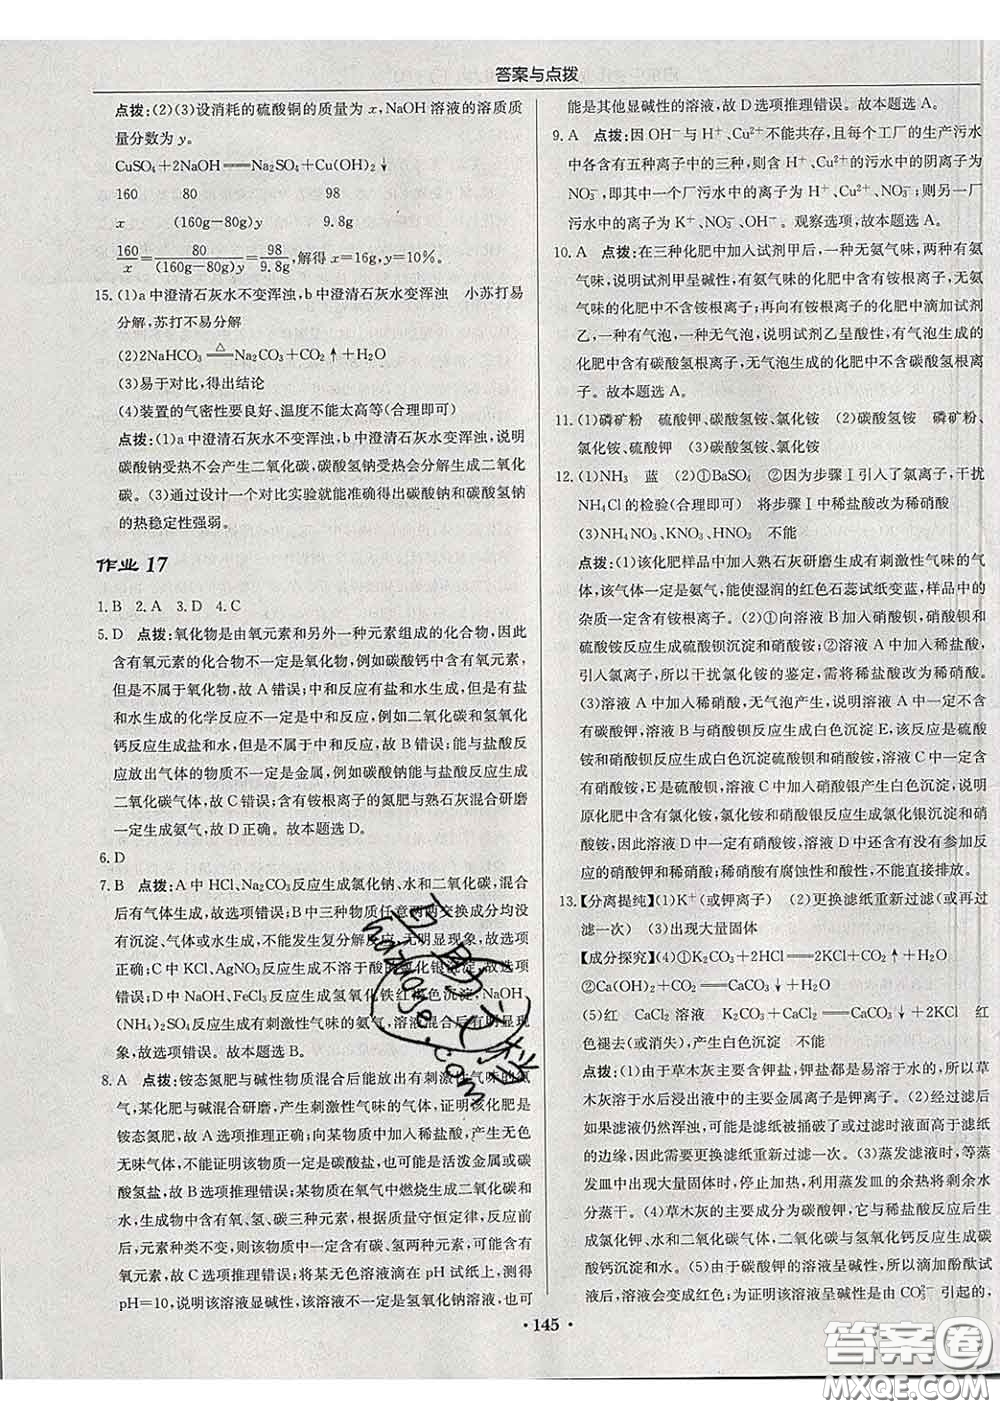 答案与点拨
点拨:(2)(3)设消耗的硫酸铜的质量为 x,NaOH 溶液的溶质质
量分数为 y。
CuSO₄+2NaOH══Na₂SO₄+Cu(OH)₂↓
160 80 98
x (160g−80g)y 9.8g
160/x=80/(160g−80g)y=98/9.8g,解得 x=16g,y=10%。
15.(1)a中澄清石灰水不变浑浊,b中澄清石灰水变浑浊 小苏打易
分解,苏打不易分解
(2)2NaHCO₃══△Na₂CO₃+CO₂↑+H₂O
(3)易于对比,得出结论
(4)装置的气密性要良好、温度不能太高等(合理即可)
点拨:(1)a中澄清石灰水不变浑浊,b中澄清石灰水变浑浊,说明
碳酸钠受热不会产生二氧化碳,碳酸氢钠受热会分解生成二氧化
碳。(3)通过设计一个对比实验就能准确得出碳酸钠和碳酸氢钠
的热稳定性强弱。
作业 17
1.B 2.A 3.D 4.C
5.D 点拨:氧化物是由氧元素和另外一种元素组成的化合物,因此
含有氧元素的化合物不一定是氧化物,例如碳酸钙中含有氧元素,
但是不属于氧化物,故 A 错误;中和反应有盐和水生成,但是有盐
和水生成的化学反应不一定是中和反应,例如二氧化碳和氢氧化
钙反应生成盐和水,但是不属于中和反应,故 B 错误;能与盐酸反
应放出气体的物质不一定是金属,例如碳酸钠能与盐酸反应生成
二氧化碳气体,故 C 错误;含有铵根离子的氮肥与熟石灰混合研磨
一定生成氨气,故 D 正确。故本题选 D。
6.D
7.B 点拨:A 中 HCl、Na₂CO₃反应生成氯化钠、水和二氧化碳,混合
后有气体生成,故选项错误;B 中三种物质任意两两交换成分均没
有沉淀、气体或水生成,不能发生复分解反应,无明显现象,故选项
正确;C 中 KCl、AgNO₃反应生成不溶于酸的氯化银沉淀,故选项
错误;D 中 NaOH、FeCl₃反应生成氢氧化铁红褐色沉淀,NaOH、
(NH₄)₂SO₄反应生成有刺激性气味的氨气,溶液混合后有明显现
象,故选项错误。故本题选 B。
8.A 点拨:铵态氮肥与碱性物质混合后能放出有刺激性气味的氨
气,某化肥与碱混合研磨,产生有刺激性气味的气体,证明该化肥是
铵态氮肥,故 A 选项推理正确;向某物质中加入稀盐酸,产生无色
无味气体,不能证明该物质一定是碳酸盐,可能是活泼金属或碳酸
酸氢盐,故 B 选项推理错误;某物质在氧气中燃烧生成二氧化碳和
水,生成物中含有氧、氢、碳三种元素,根据质量守恒定律,反应前
后,元素种类不变,则该物质中一定含有碳、氢两种元素,可能含有
氧元素,故 C 选项推理错误;将某无色溶液滴在 pH 试纸上,测得
pH=10,说明该溶液显碱性,该溶液不一定是氢氧化钠溶液,也可
能是其他显碱性的溶液,故 D 选项推理错误。故本题选 A。
9.A 点拨:因 OH⁻与 H⁺、Cu²⁺不能共存,且每个工厂的生产污水
中各含有五种离子中的三种,则含 H⁺、Cu²⁺的污水中的阴离子为
NO₃⁻,即其中一个厂污水中的离子为 H⁺、Cu²⁺、NO₃⁻;则另一厂
污水中的离子为 K⁺、NO₃⁻、OH⁻。观察选项,故本题选 A。
10.A 点拨:在三种化肥中加入试剂甲后,一种无氨气味,两种有氨
气味,说明试剂甲呈碱性,有氨气味的化肥中含有铵根离子,无氨
气味的化肥中不含铵根离子;再向有铵根离子的化肥中滴加试剂
乙,一种有气泡,一种无气泡,说明试剂乙呈酸性,有气泡生成的
化肥中含有碳酸氢根离子,无气泡生成的化肥中不含碳酸氢根离
子。故本题选 A。
11.(1)磷矿粉 硫酸钾、碳酸氢铵、氯化铵 (2)碳酸氢铵 磷矿粉、
氯化铵、硫酸钾 (3)碳酸氢铵、氯化铵
12.(1)NH₃ 蓝 (2)①BaSO₄ ②因为步骤Ⅰ引入了氯离子,干扰
NH₄Cl 的检验(合理即可) 将步骤Ⅰ中稀盐酸改为稀硝酸
(3)NH₄NO₃、KNO₃、HNO₃ 不能
点拨:(1)该化肥样品中加入熟石灰研磨生成有刺激性气味的气
体,该气体一定是氨气,能使湿润的红色石蕊试纸变蓝,样品中的
杂质一定含有铵根离子。(2)①向溶液 B 加入硝酸钡,硝酸钡和
硫酸铵反应生成硫酸钡沉淀和硝酸铵;②溶液 A 中加入稀盐酸,
引入氯离子,所以干扰氯化铵的鉴定,需将稀盐酸改为稀硝酸。
(3)溶液 A 中加入稀硝酸,无气泡产生,说明溶液 A 中一定不含有
碳酸钾,溶液 B 与硝酸钡反应生成白色沉淀 E,该反应是硫酸
铵和硝酸钡反应生成白色沉淀硫酸钡和硝酸铵,溶液 D 中含有硝
酸铵,E 是硫酸钡。溶液 C 中加入硝酸银产生白色沉淀,说明
原化肥中含有氯化铵,氯化铵和硝酸银反应生成氯化银沉淀和硝
酸铵,因此溶液 D 中一定有硝酸铵,溶液 D 中还含有没有参加反
应的硝酸钾和稀硝酸;稀硝酸有腐蚀性和酸性,不能直接排放。
13.【分离提纯】(1)K⁺(或钾离子) (2)更换滤纸重新过滤(或再过
滤一次) (3)出现大量固体
【成分探究】(4)①K₂CO₃+2HCl══2KCl+CO₂↑+H₂O
②Ca(OH)₂+CO₂══CaCO₃↓+H₂O
(5)红 CaCl₂ 溶液 K₂CO₃+CaCl₂══CaCO₃↓+2KCl 红
色褪去(或消失),产生白色沉淀 不能
点拨:(1)由于草木灰主要含钾盐,钾盐都是易溶于水的,所以草
木灰溶于水后浸出液中的主要金属离子是钾离子。(2)经过滤后
如果滤液仍然浑浊,可能是滤纸被捅破了或过滤时液面高于滤纸
的边缘,因此,需要更换滤纸重新过滤一次。(3)蒸发滤液时,等蒸
发皿中出现大量固体时,停止加热,利用蒸发皿的余热将剩余水
分蒸干。(4)草木灰的主要成分为碳酸钾,它与盐酸反应后生
成氯化钾、水和二氧化碳气体,二氧化碳与氢氧化钙反应生成碳
酸钙沉淀和水。(5)由于碳酸钾的溶液呈碱性,所以滴加酚酞试
液后,溶液会变成红色;为证明该溶液呈碱性是由 CO₃²⁻ 引起的,
• 145 •
答案圈
MXQE.COM